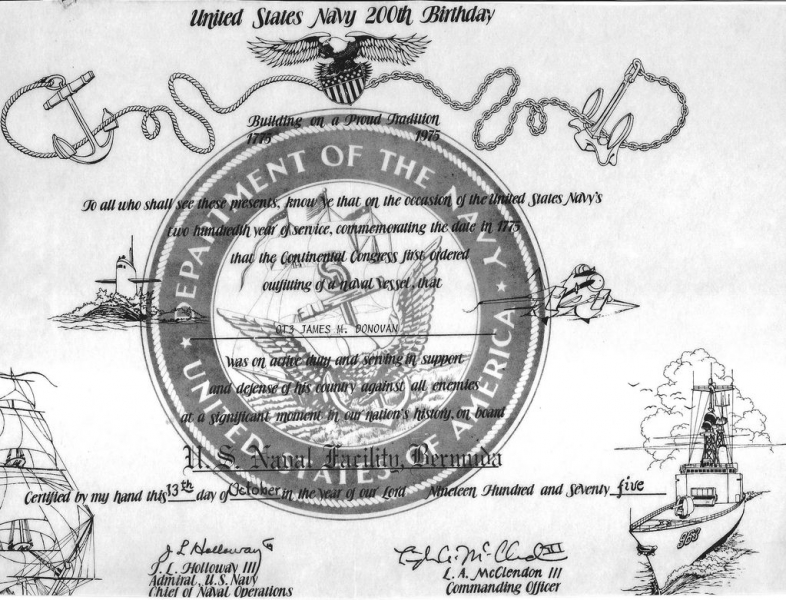 United States Navy 200th Birthday
Building on a Proud Tradition
1775 1975
DEPARTMENT OF THE NAVY
UNITED STATES OF AMERICA
To all who shall see these presents, know ye that on the occasion of the United States Navy's
two hundredth year of service, commemorating the date in 1775
that the Continental Congress first ordered
outfitting of a naval vessel, that
OT3 JAMES M. DONOVAN
was on active duty and serving in support
and defense of his country against all enemies
at a significant moment in our nation's history, on board
U. S. Naval Facility, Bermuda
Certified by my hand this 13th day of October in the year of our Lord Nineteen Hundred and Seventy five
963
J L Holloway III
J. L. Holloway III
Admiral, U.S. Navy
Chief of Naval Operations
L. A. McClendon III
Commanding Officer